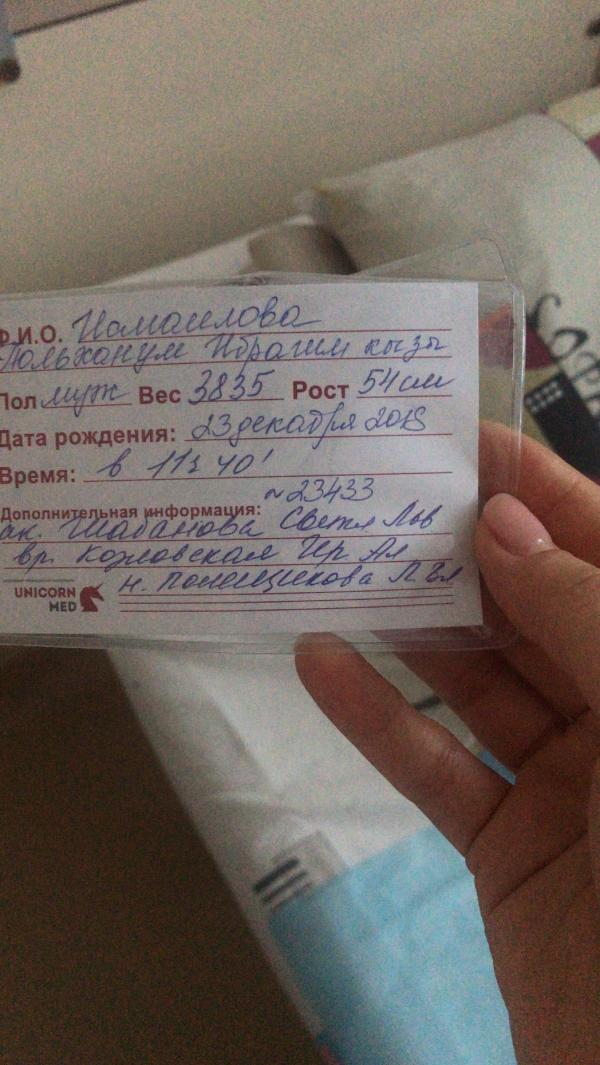 Ф.И.О. Исмаилова
Гюльханум Ибрагим кызы
Пол муж Вес 3835 Рост 54 см
Дата рождения: 23 декабря 2018
Время: в 11ч 40'
Дополнительная информация: ~23433
ак. Шабанова Светл Льв
вр. Козловская Ир Ал
UNICORN н. Полещикова Л Вл
MED